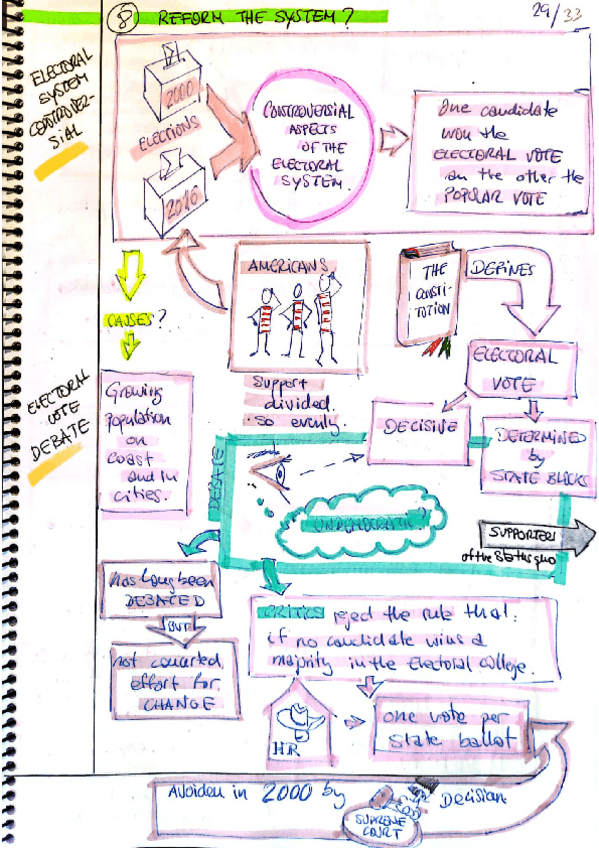 8 REFORM THE SYSTEM?
29/33
ELECTORAL
SYSTEM
CONTROVER-
SIAL
2000
ELECTIONS
2016
CONTROVERSIAL
ASPECTS
OF THE
ELECTORAL
SYSTEM.
One candidate
won the
ELECTORAL VOTE
an the other the
POPULAR VOTE
CAUSES?
AMERICANS
support
divided.
so evenly.
THE
CONSTI-
TUTION
DEFINES
ELECTORAL
VOTE
DECISIVE
DETERMINED
by
STATE BLOCKS
ELECTORAL
VOTE
DEBATE
Growing
population
on
coast
and in
cities.
DEBATE
UNDEMOCRATIC?
SUPPORTERS
of the Status quo
has long been
DEBATED
BUT
not concerted
effort for
CHANGE
CRITICS reject the rule that:
if no candidate wins a
majority in the Electoral College.
HR
one vote per
State ballot
Avoided in 2000 by
Decision
SUPREME
COURT